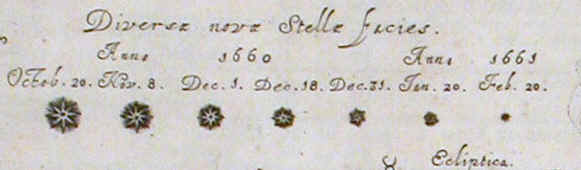 Diversæ novæ Stellæ facies.
Anno 1660 Anno 1661
Octob. 20. Nov. 8. Dec. 1. Dec. 18. Dec. 31. Jan. 20. Feb. 20.
♉ Ecliptica.